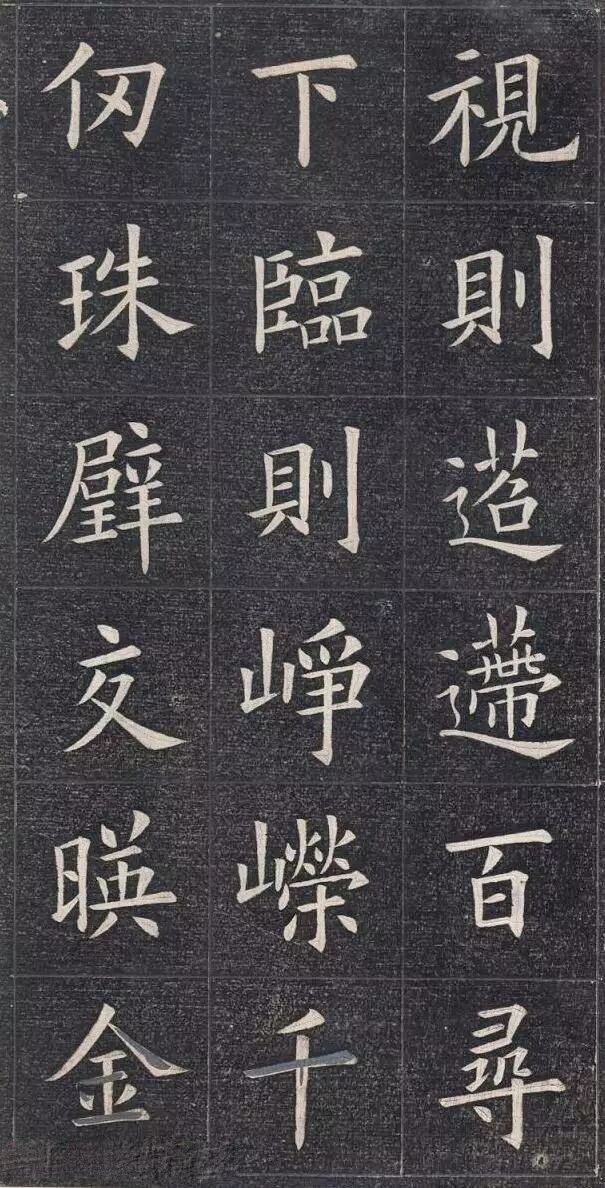 視則迢遰百尋
下臨則崢嶸千仞
珠璧交暎金